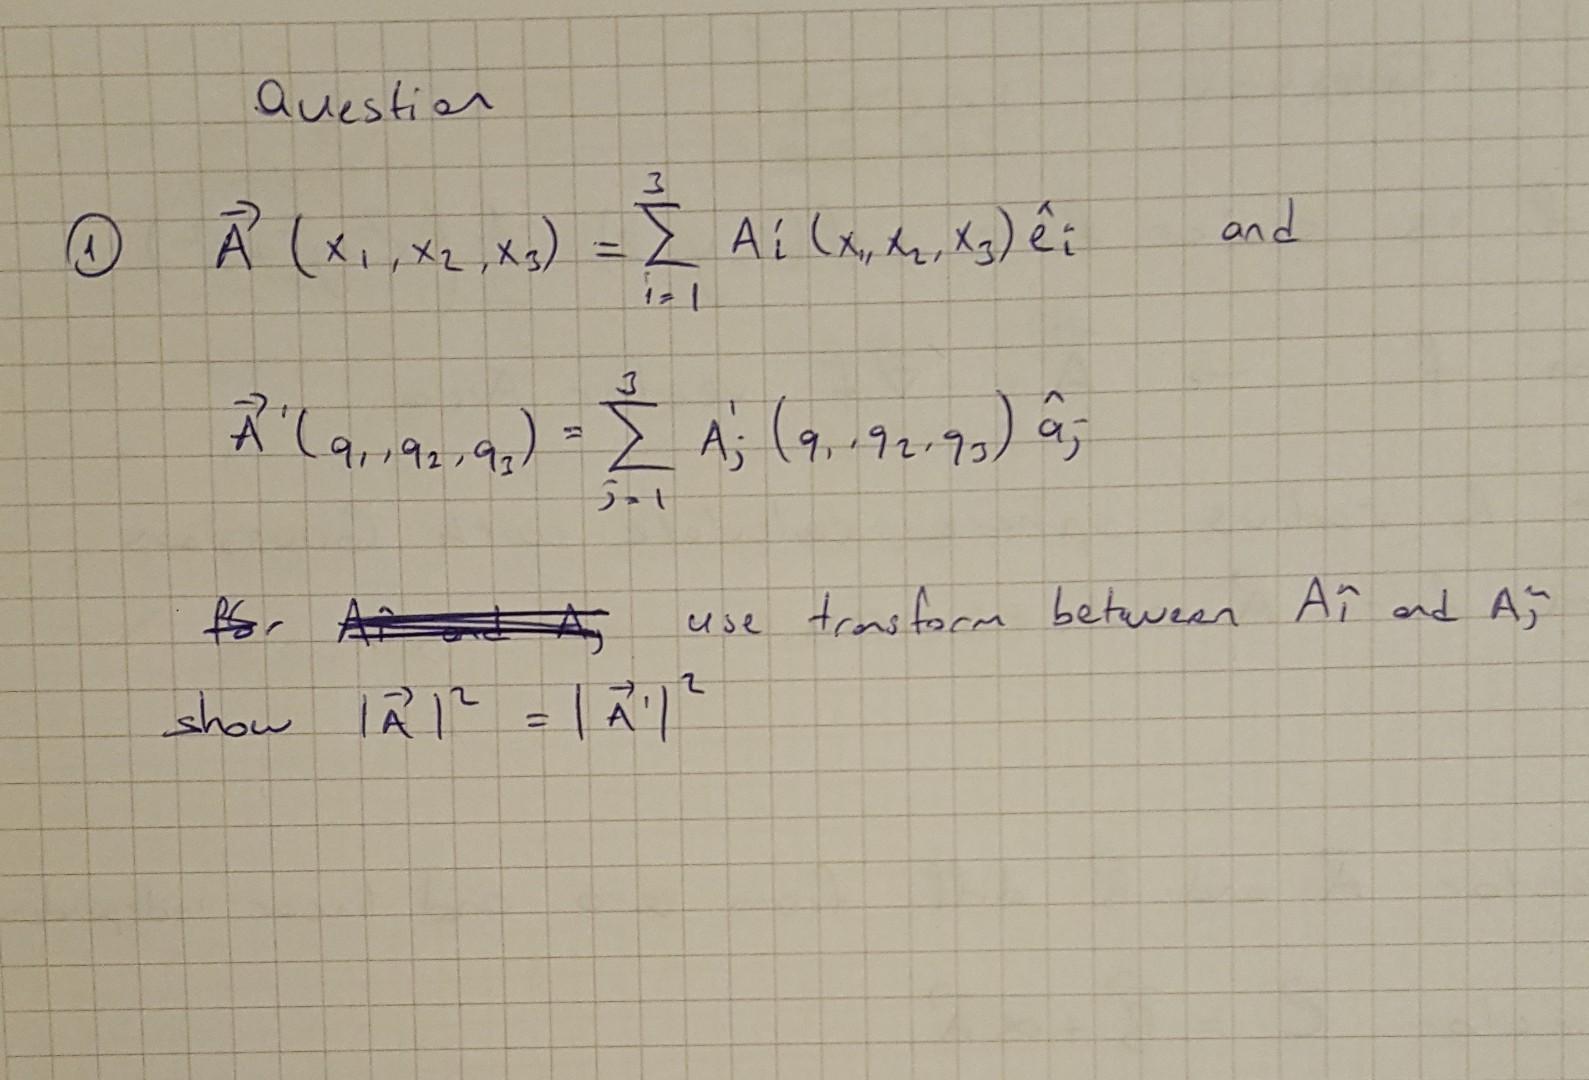 Question
① $\vec{A}(x_1, x_2, x_3) = \sum_{i=1}^{3} A_i(x_1, x_2, x_3)\hat{e}_i$ and
$\vec{A}'(q_1, q_2, q_3) = \sum_{j=1}^{3} A_j'(q_1, q_2, q_3)\hat{q}_j$
use transform between $A_i$ and $A_j$
show $|\vec{A}|^2 = |\vec{A}'|^2$